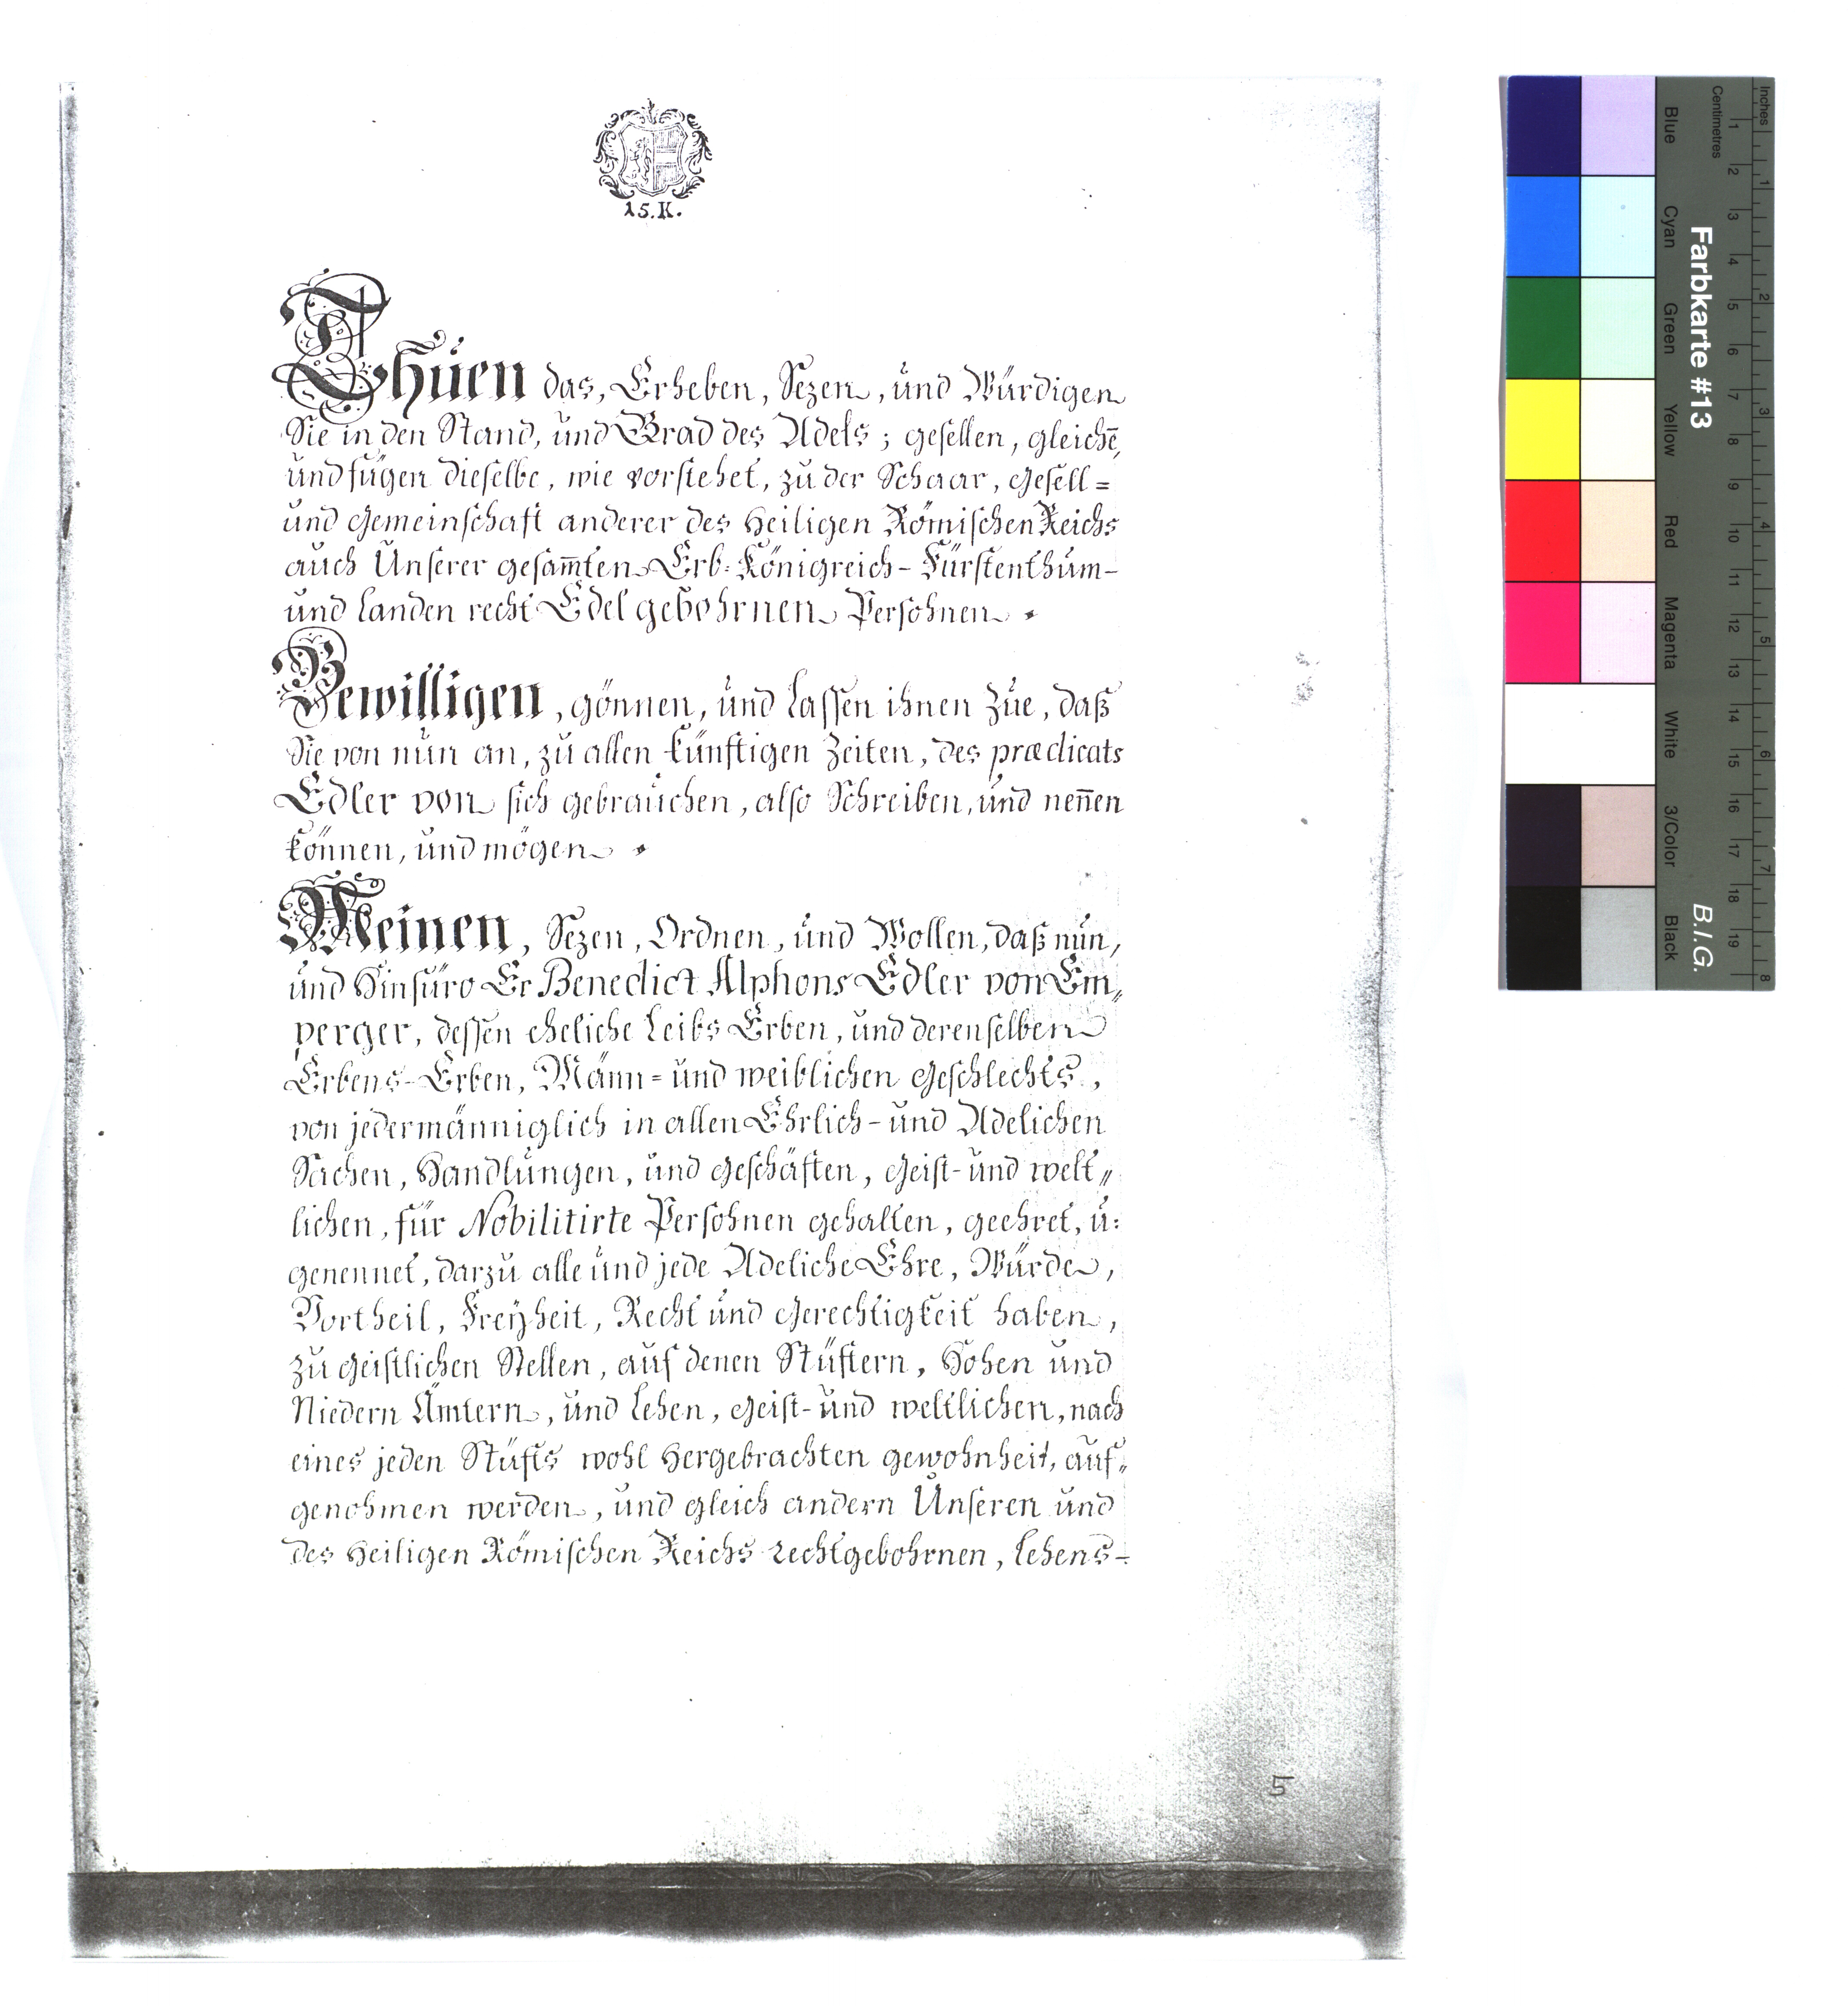 15. K.
Thuen das, Erheben, Sezen, und Würdigen
Sie in den Stand, und Grad des Adels; gesellen, gleichē,
und fügen dieselbe, wie vorstehet, zu der Schaar, Gesell=
und Gemeinschaft anderer des Heiligen Römischen Reichs
auch Unserer gesam̄ten Erb= Königreich- Fürstenthum-
und Landen recht Edel gebohrnen Persohnen.
Bewilligen, gönnen, und Lassen ihnen Zue, daß
Sie von nun an, zu allen künftigen Zeiten, des prædicats
Edler von sich gebrauchen, also Schreiben, und nen̄en
können, und mögen.
Meinen, Sezen, Ordnen, und Wollen, daß nun,
und Hinfüro Er Benedict Alphons Edler von Em„
perger, dessen eheliche Leibs Erben, und derenselben
Erbens-Erben, Männ= und weiblichen Geschlechts,
von jedermänniglich in allen Ehrlich- und Adelichen
Sachen, Handlungen, und Geschäften, Geist- und welt„
lichen, für Nobilitirte Persohnen gehalten, geehret, u:
genennet, darzu alle und jede Adeliche Ehre, Würde,
Vortheil, Freyheit, Recht und Gerechtigkeit haben,
zu Geistlichen Stellen, auf denen Stüftern, Hohen und
Niedern Ämtern, und Lehen, Geist- und weltlichen, nach
eines jeden Stüfts wohl Hergebrachten gewohnheit, auf„
genohmen werden, und gleich andern Unseren und
des Heiligen Römischen Reichs rechtgebohrnen, Lehens-
5
Farbkarte #13
B.I.G.
Inches
Centimetres
1 2 3 4 5 6 7 8 9 10 11 12 13 14 15 16 17 18 19
1 2 3 4 5 6 7 8
Blue
Cyan
Green
Yellow
Red
Magenta
White
3/Color
Black